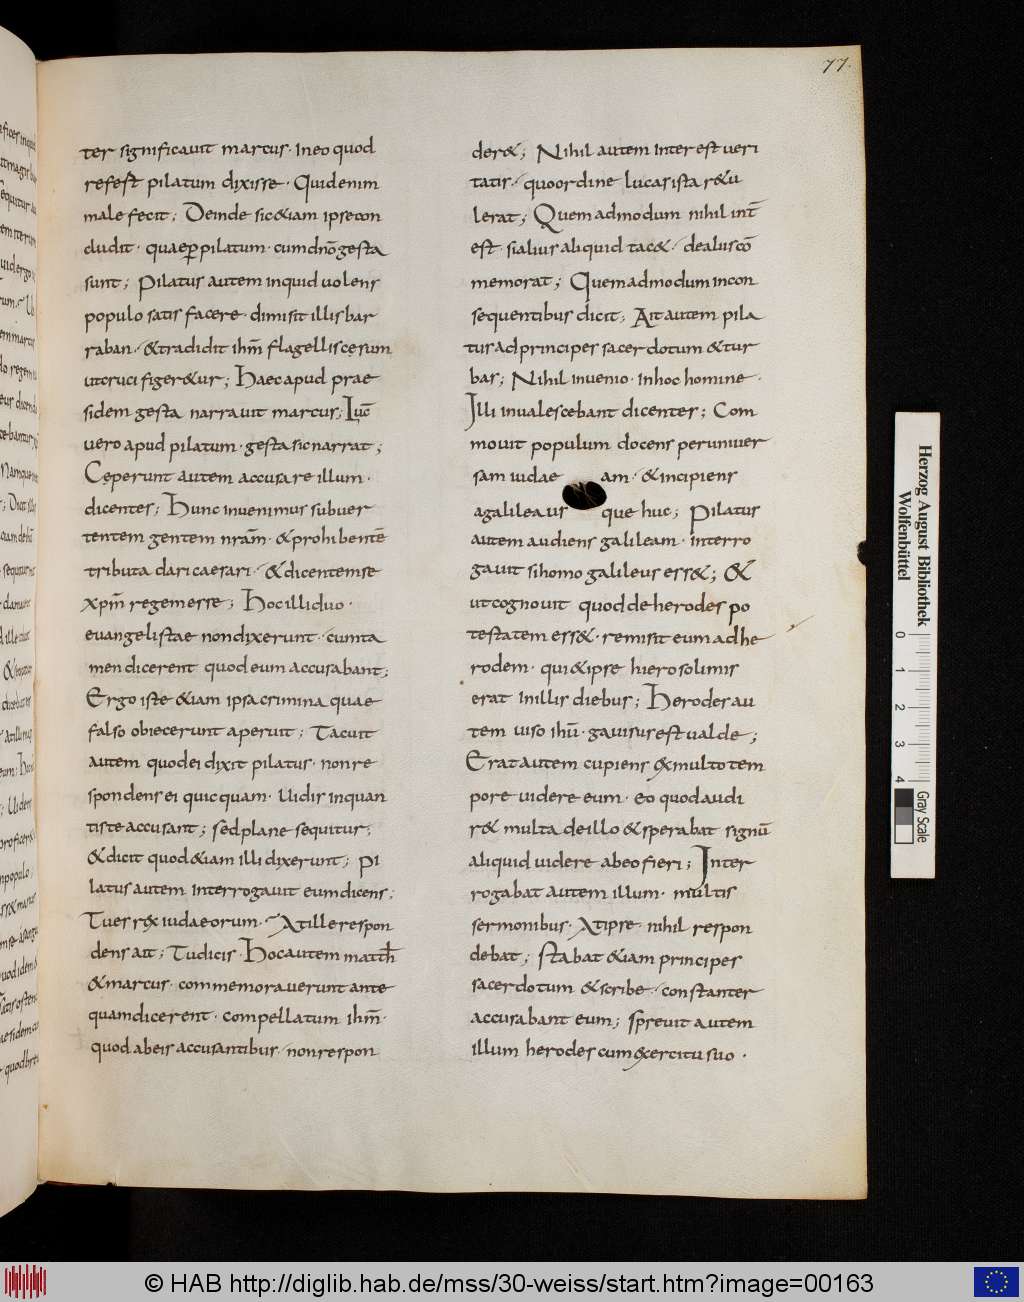 77.
ter significavit marcus · In eo quod
refert pilatum dixisse · Quid enim
male fecit ; Deinde sic &iam ipse con
cludit · quae ꝑ pilatum · cum dn̄o gesta
sunt ; Pilatus autem inquid uolens
populo satis facere · dimisit illis bar
raban · & tradidit ihm̄ flagellis cesum
ut cruci figer&ur ; Haec apud prae
sidem gesta narravit marcus ; Luc̄
vero apud pilatum · gesta sic narrat ;
Ceperunt autem accusare illum ·
dicentes ; Hunc invenimus subver
tentem gentem nr̄am · & prohibentē
tributa dari caesari · & dicentem se
xpm̄ regem esse ; Hoc illi duo ·
evangelistae non dixerunt · cum ta
men dicerent quod eum accusabant ;
Ergo iste &iam ipsa crimina quae
falso obiecerunt aperuit ; Tacuit
autem quod ei dixit pilatus · non re
spondens ei quicquam · Uidis in quan
tis te accusant ; sed plane sequitur ;
& dicit quod &iam illi dixerunt ; Pi
latus autem interrogavit eum dicens ;
Tu es rex iudaeorum · At ille respon
dens ait ; Tu dicis · Hoc autem matth̄
& marcus · commemoraverunt ante
quam dicerent · compellatum ihm̄ ·
quod ab eis accusantibus · non respon
der& ; Nihil autem interest veri
tatis · quo ordine lucas ista r&u
lerat ; Quemadmodum nihil int̄
est · si alius aliquid tac& · de alius cō
memorat ; Quemadmodum in con
sequentibus dicit ; Ait autem pila
tus ad principes sacerdotum & tur
bas ; Nihil invenio · in hoc homine ·
Illi invalescebant dicentes ; Com
movit populum docens per univer
sam iudaeam · & incipiens
a galilea usque huc ; Pilatus
autem audiens galileam · interro
gavit si homo galileus ess& ; &
ut cognovit quod de herodes po
testatem ess& · remisit eum ad he
rodem · qui & ipse hierosolimis
erat in illis diebus ; Herodes au
tem viso ihū · gavisus est valde ;
Erat autem cupiens ex multo tem
pore videre eum · eo quod audi
r& multa de illo & sperabat signū
aliquid videre ab eo fieri ; Inter
rogabat autem illum · multis
sermonibus · At ipse nihil respon
debat ; Stabat &iam principes
sacerdotum & scribe · constanter
accusabant eum ; Sprevit autem
illum herodes cum exercitu suo ·
Herzog August Bibliothek
Wolfenbüttel
0 1 2 3 4
Gray Scale
© HAB http://diglib.hab.de/mss/30-weiss/start.htm?image=00163